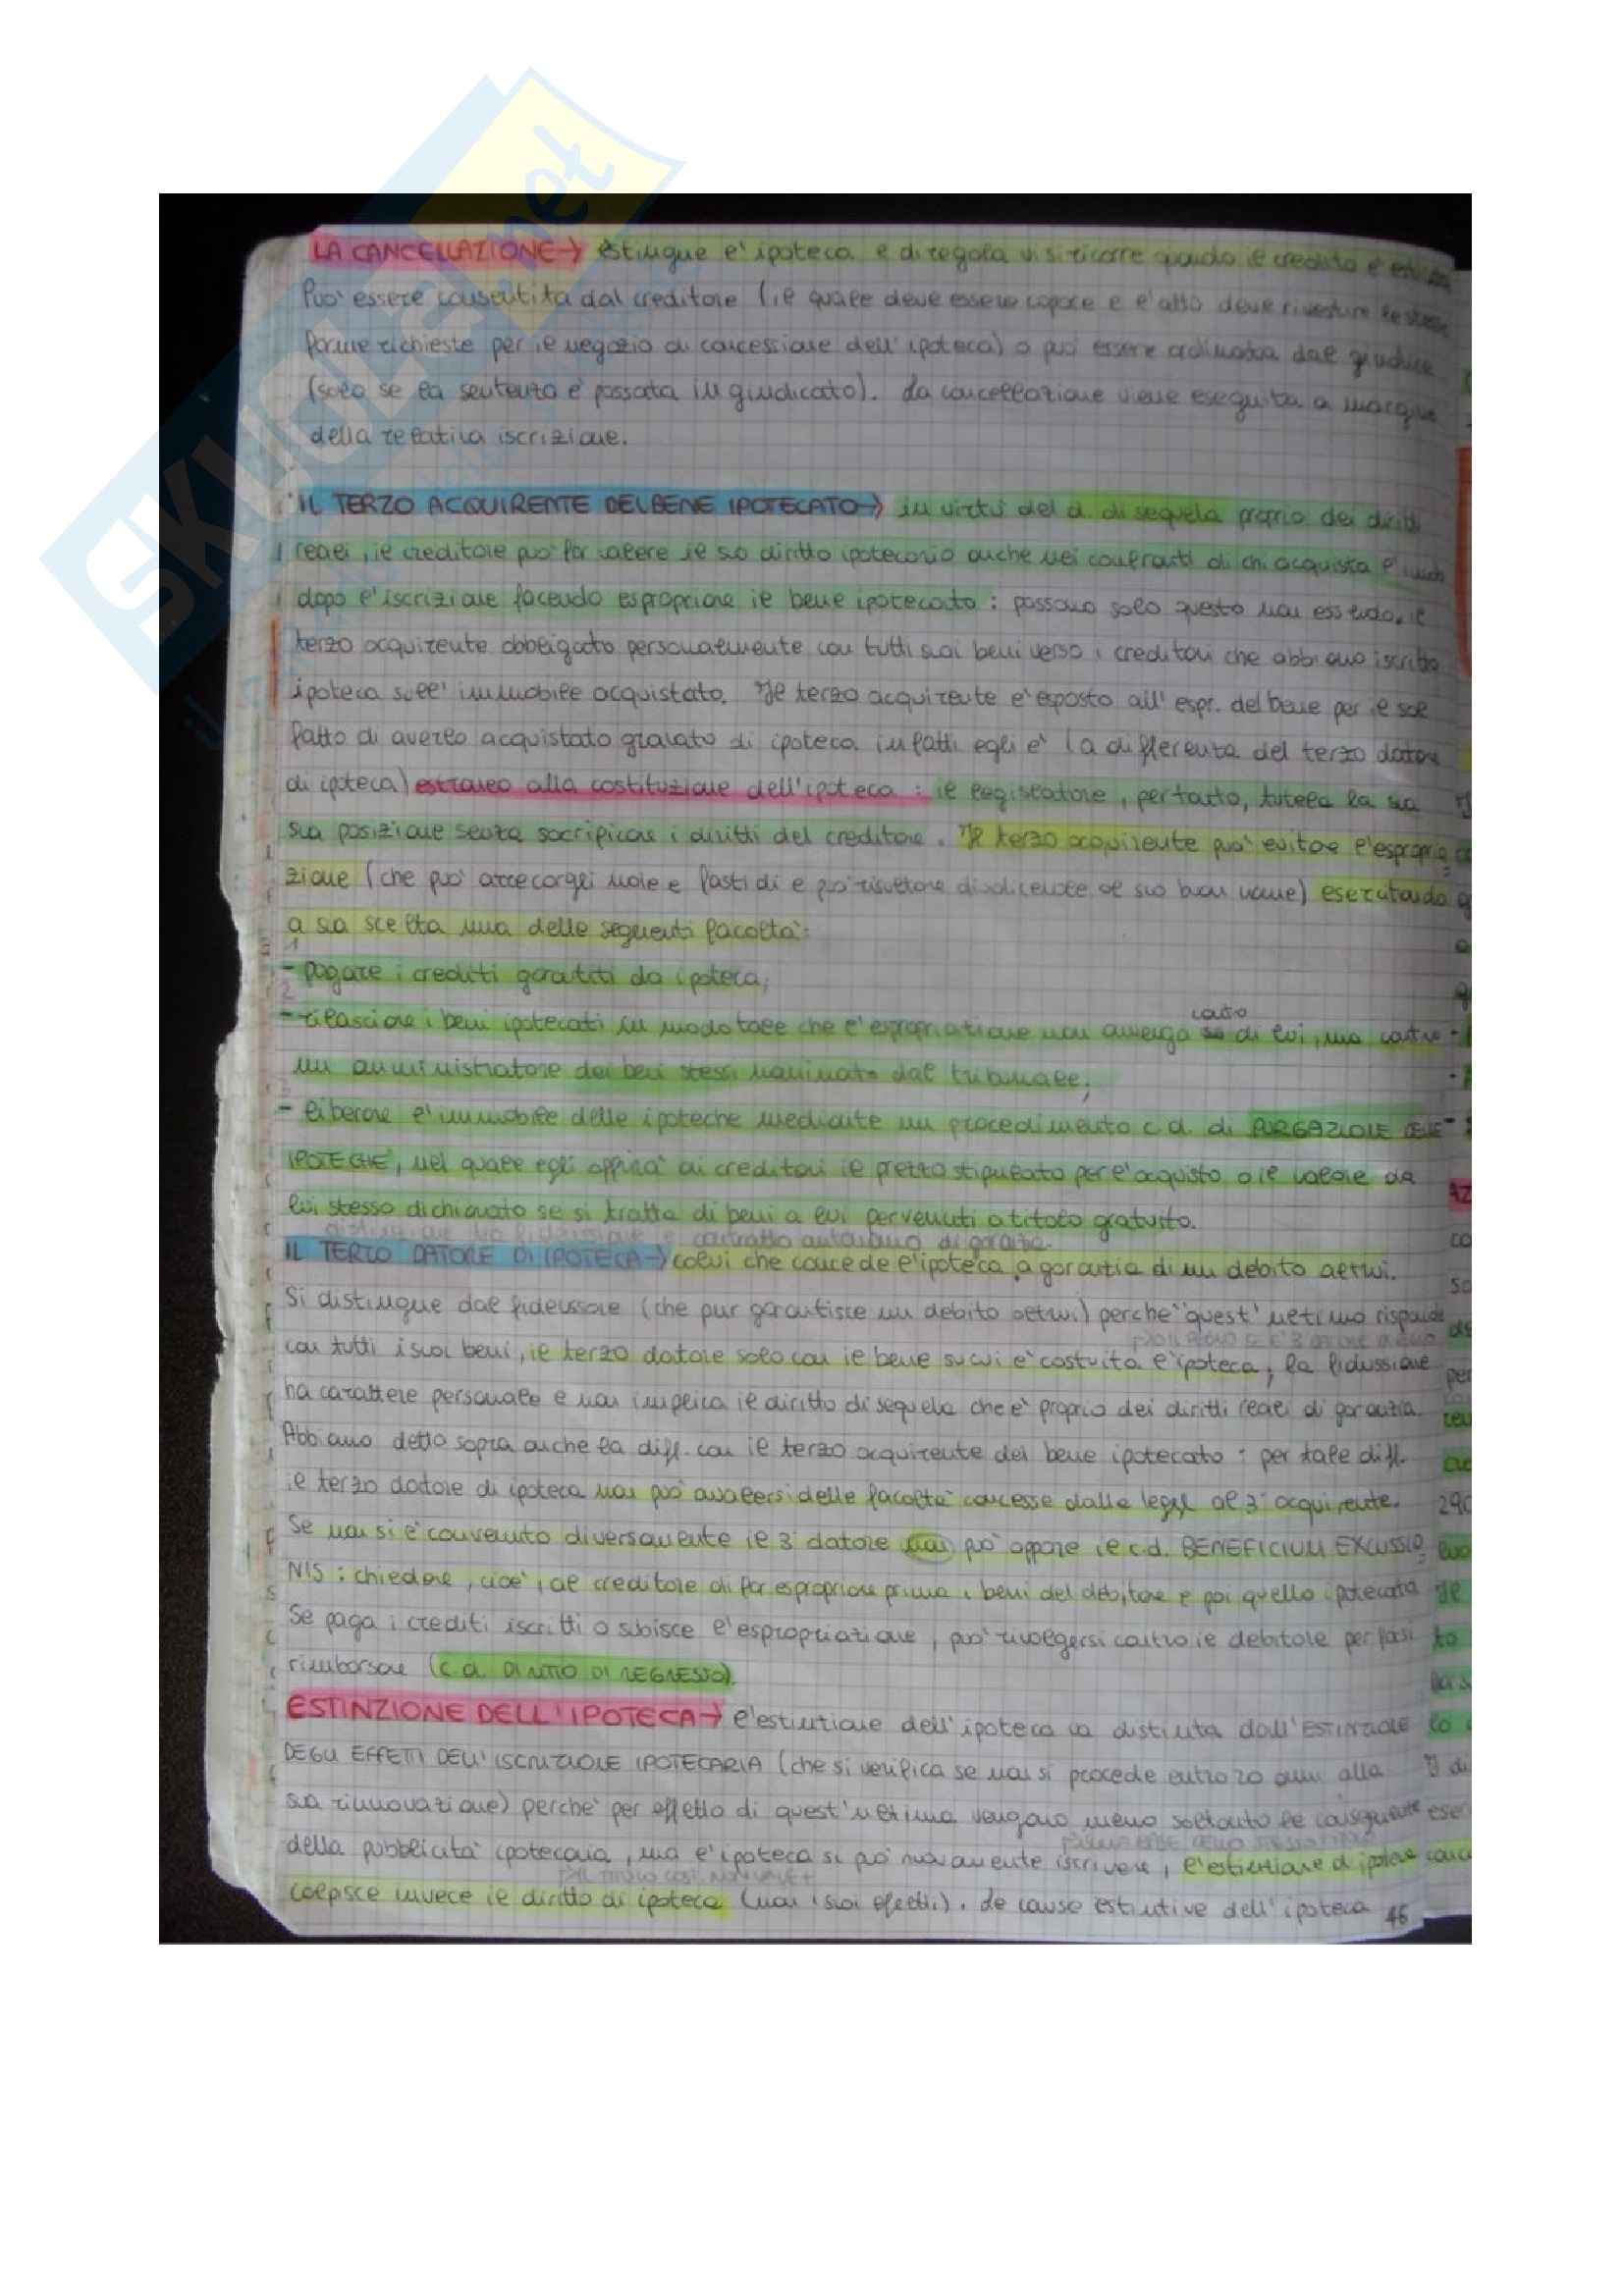 SKUOLA.net
LA CANCELLAZIONE → estingue l'ipoteca e di regola vi si ricorre quando il credito è estinto
Può essere consentita dal creditore (il quale deve essere capace e l'atto deve rivestire le stesse
forme richieste per il negozio di concessione dell'ipoteca) o può essere ordinata dal giudice
(solo se la sentenza è passata in giudicato). La cancellazione viene eseguita a margine
della relativa iscrizione.
IL TERZO ACQUIRENTE DEL BENE IPOTECATO → in virtù del d. di sequela proprio dei diritti
reali, il creditore può far valere il suo diritto ipotecario anche nei confronti di chi acquista
dopo l'iscrizione facendo espropriare il bene ipotecato: possono solo questo non essendo il
terzo acquirente obbligato personalmente con tutti suoi beni verso i creditori che abbiano iscritto
ipoteca sull'immobile acquistato. Il terzo acquirente è esposto all'espr. del bene per il sol
fatto di averlo acquistato gravato di ipoteca infatti egli è (a differenza del terzo datore
di ipoteca) estraneo alla costituzione dell'ipoteca: il legislatore, pertanto, tutela la sua
sua posizione senza sacrificare i diritti del creditore. Il terzo acquirente può evitare l'espropria
zione (che può arrecargli noie e fastidi e può riflettere al suo buon nome) esercitando
a sua scelta una delle seguenti facoltà:
1
- pagare i crediti garantiti da ipoteca;
2
contro
- rilasciare i beni ipotecati in modo tale che l'espropriazione non avvenga di lui, ma contro
un amministratore dei beni stessi nominato dal tribunale;
- liberare l'immobile delle ipoteche mediante un procedimento c.d. di PURGAZIONE DELLE
IPOTECHE, nel quale egli offrirà ai creditori il prezzo stipulato per l'acquisto o il valore da
lui stesso dichiarato se si tratta di beni a lui pervenuti a titolo gratuito.
distinzione tra fideiussione e contratto autonomo di garanzia.
IL TERZO DATORE DI IPOTECA → colui che concede l'ipoteca a garanzia di un debito altrui.
Si distingue dal fideiussore (che pur garantisce un debito altrui) perché quest'ultimo risponde
con tutti i suoi beni, il terzo datore solo con il bene su cui è costuita l'ipoteca; la fidussione
ha carattere personale e non implica il diritto di sequela che è proprio dei diritti reali di garanzia.
Abbiamo detto sopra anche la diff. con il terzo acquirente del bene ipotecato: per tale diff.
il terzo datore di ipoteca non può avvalersi delle facoltà concesse dalla legge al 3° acquirente.
Se non si è convenuto diversamente il 3° datore non può opporre il c.d. BENEFICIUM EXCUSSIO
NIS: chiedere, cioè, al creditore di far espropriare prima i beni del debitore e poi quello ipotecato
Se paga i crediti iscritti o subisce l'espropriazione, può rivolgersi contro il debitore per farsi
rimborsare (c.d. DIRITTO DI REGRESSO).
ESTINZIONE DELL'IPOTECA → l'estinzione dell'ipoteca va distinta dall'ESTINZIONE
DEGLI EFFETTI DELL'ISCRIZIONE IPOTECARIA (che si verifica se non si procede entro 20 anni alla
sua rinnovazione) perché per effetto di quest'ultima vengono meno soltanto le conseguenze
della pubblicità ipotecaria, ma l'ipoteca si può nuovamente iscrivere, l'estinzione di ipoteca
colpisce invece il diritto di ipoteca (non i suoi effetti). Le cause estintive dell'ipoteca
46